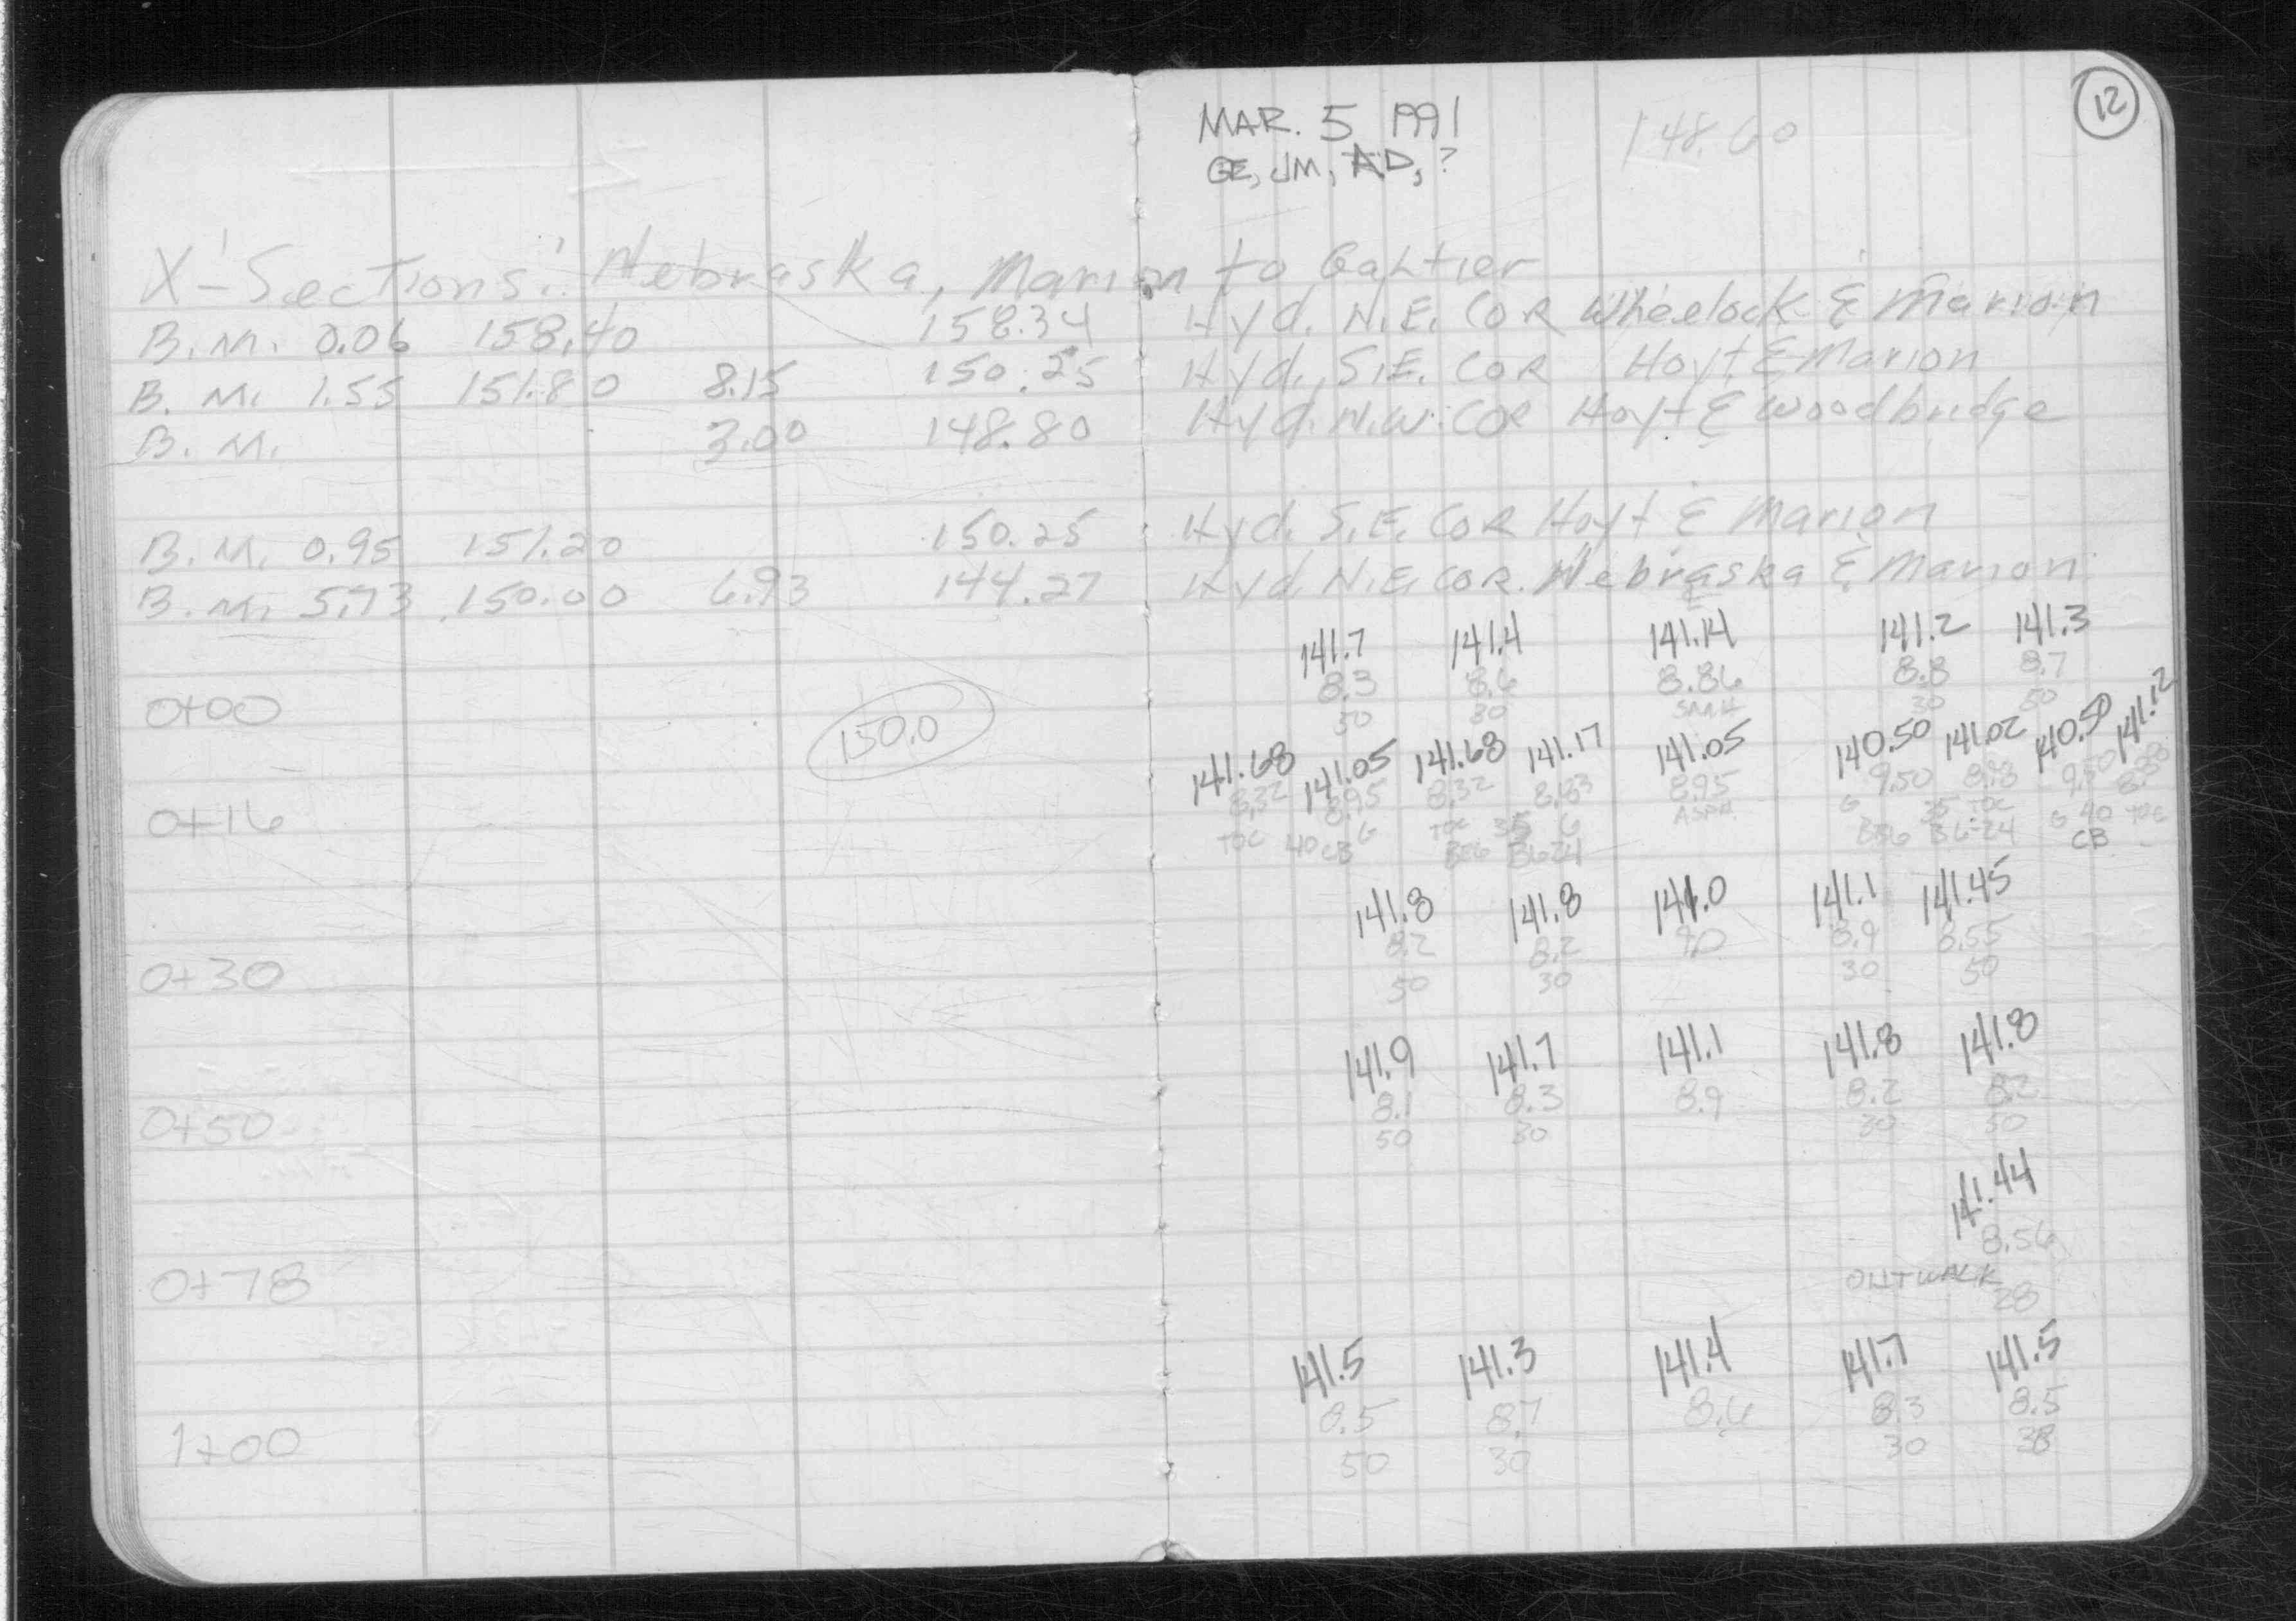 12
MAR. 5 1991 148.60
GE, JM, AD, ?
X-Sections: Nebraska, Marion to Galtier
B.M. 0.06 158.40 158.34 Hyd. N.E. COR Wheelock & Marion
B.M. 1.55 151.80 8.15 150.25 Hyd. S.E. COR Hoyt & Marion
B.M. 3.00 148.80 Hyd. N.W. COR Hoyt & Woodbridge
B.M. 0.95 151.20 150.25 Hyd. S.E. COR Hoyt & Marion
B.M. 5.73 150.00 6.93 144.27 Hyd. N.E. COR. Nebraska & Marion
141.7 141.4 141.14 141.2 141.3
8.3 8.6 8.86 8.8 8.7
0+00 50 30 SMH 30 50
150.0
141.68 141.05 141.68 141.17 141.05 140.50 141.02 140.50 141.12
8.32 8.95 8.32 8.83 8.95 9.50 8.98 9.50 8.88
0+16 TOC 40 G TOC 35 G ASPH. G 35 TOC G 40 TOC
CB B6 B624 B6 B6-24 CB
141.8 141.8 141.0 141.1 141.45
8.2 8.2 9.0 8.9 8.55
0+30 50 30 30 50
141.9 141.7 141.1 141.8 141.8
8.1 8.3 8.9 8.2 8.2
0+50 50 30 30 50
141.44
8.56
0+78 OUTWALK 28
141.5 141.3 141.4 141.7 141.5
8.5 8.7 8.6 8.3 8.5
1+00 50 30 30 38